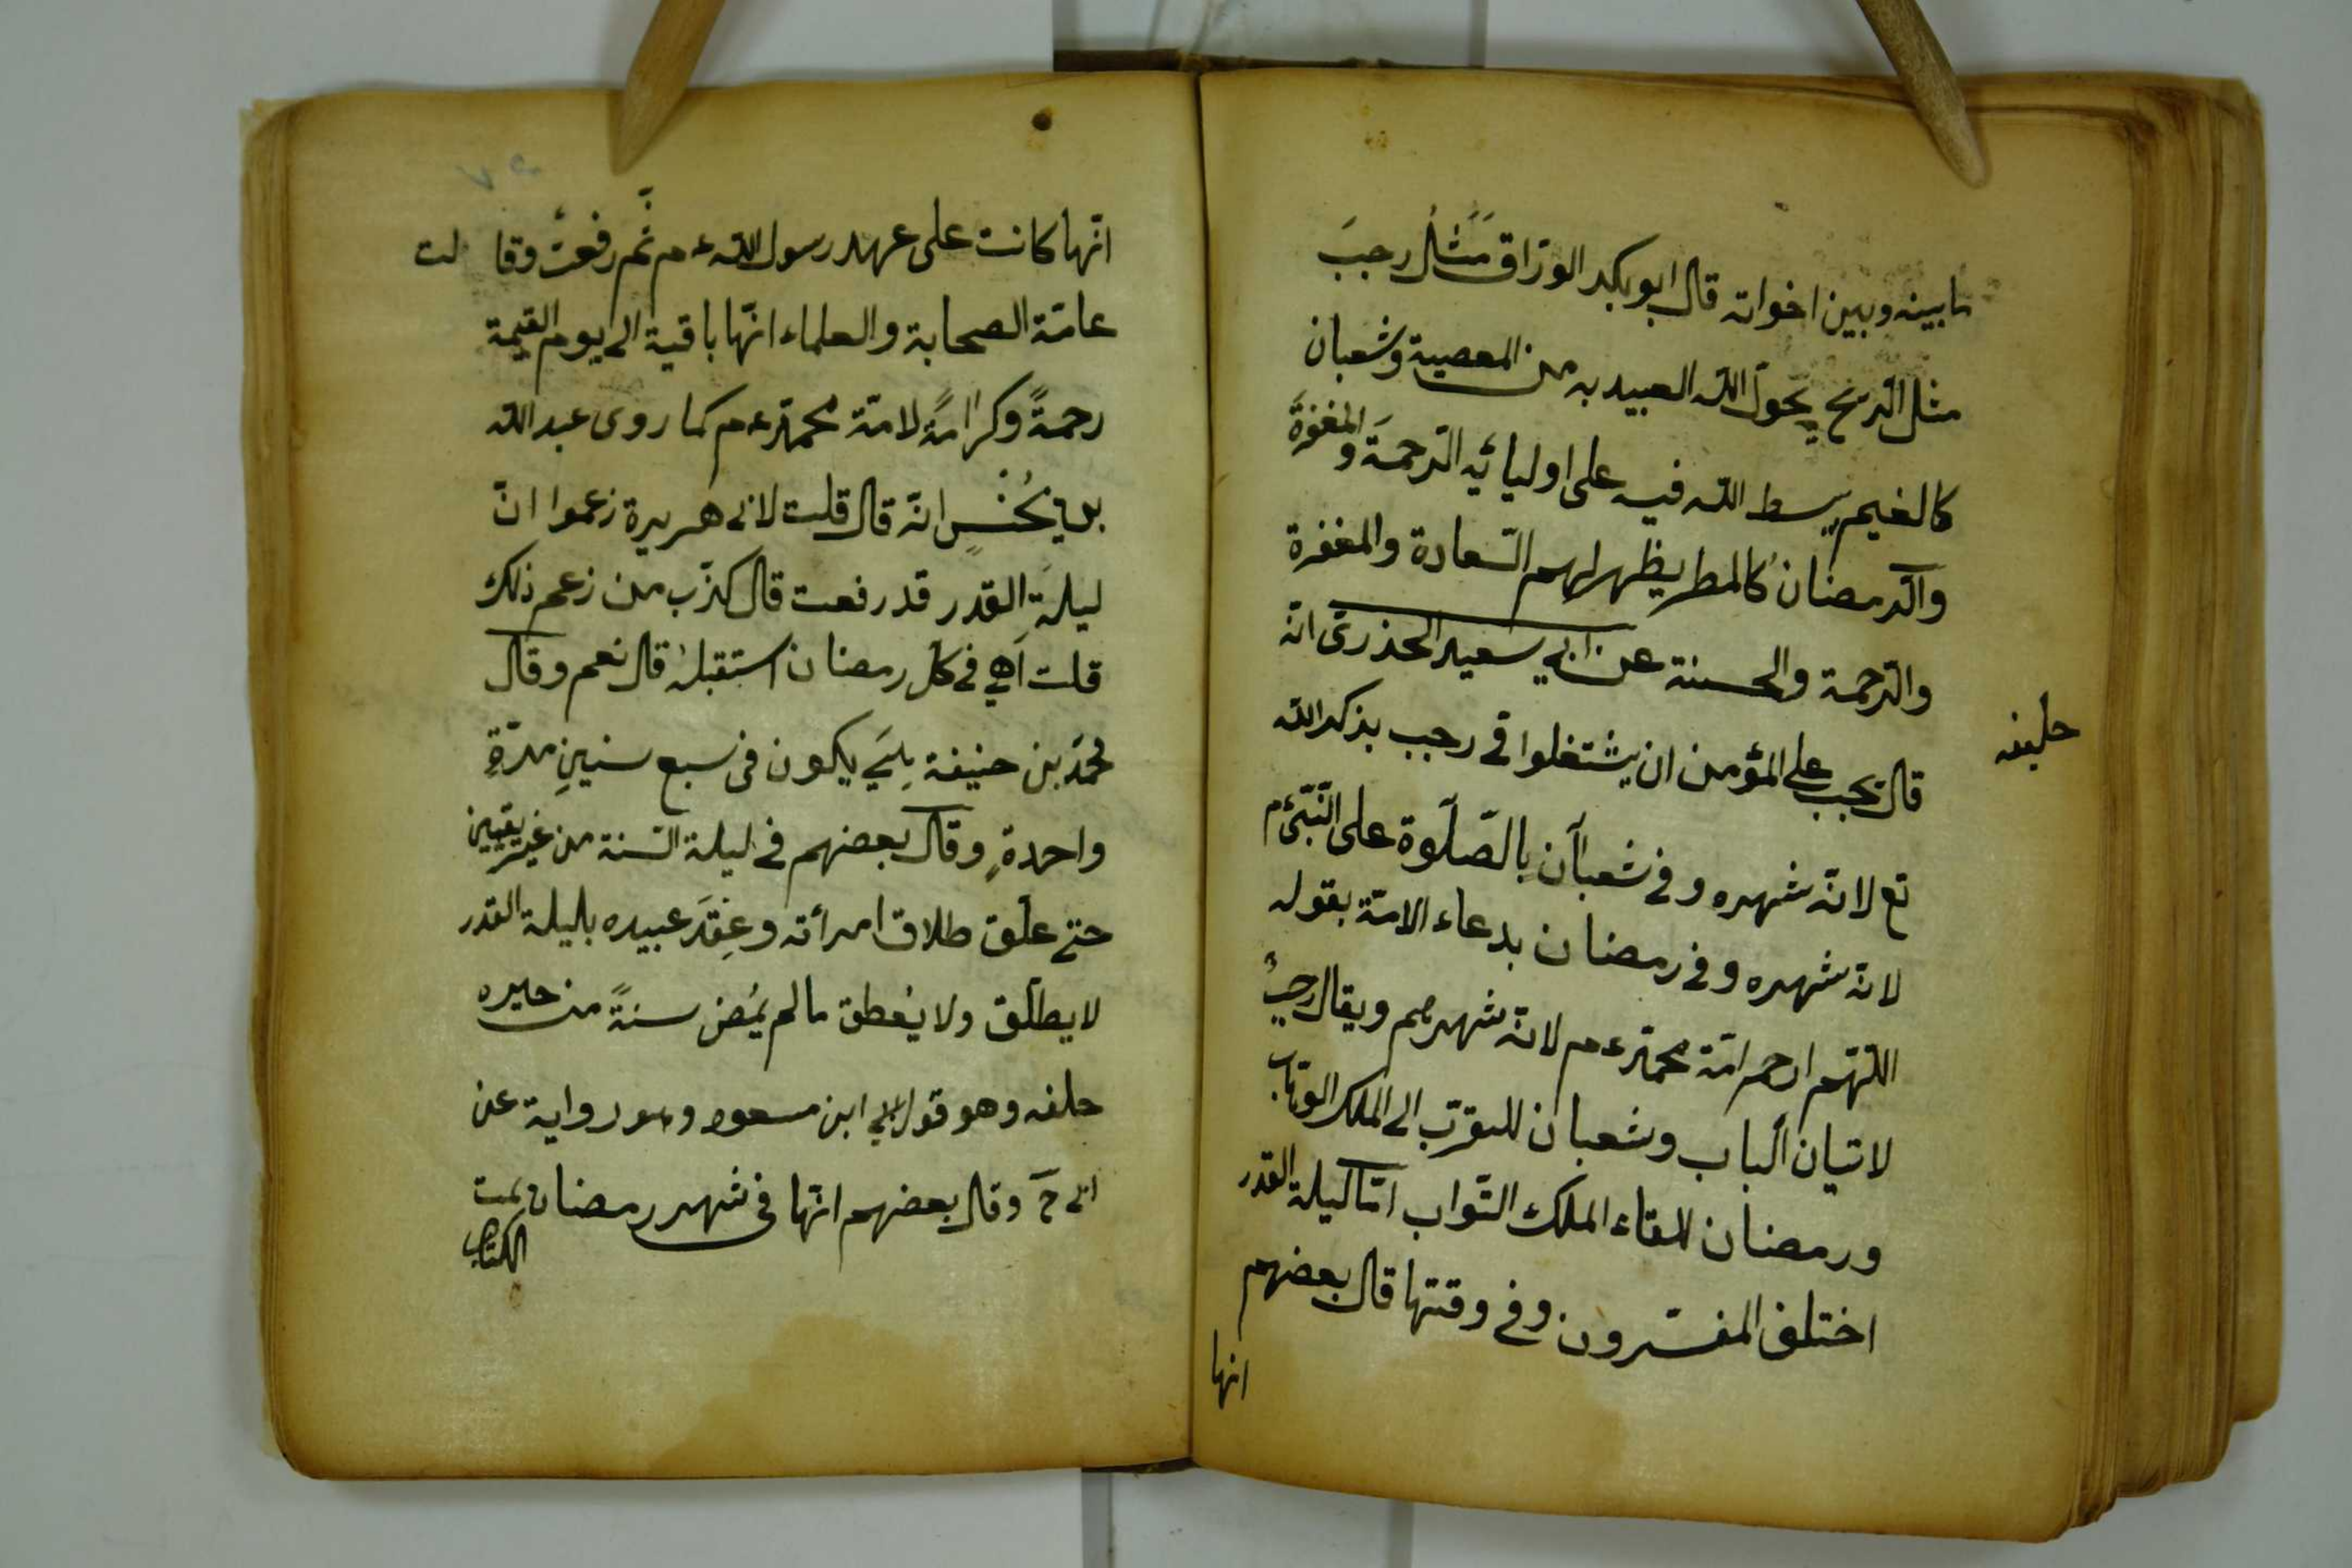 ما بينه وبين اخوانه قال ابو بكر الورّاق مَثَلُ رجبَ
مثل الرّيح يحوّل اللّه العبيد به من المعصية وشعبان
كالغيم يبسط اللّه فيه على اوليائه الرّحمةَ والمغفرةَ
والرّمضان كالمطر يظهر لهم السّعادة والمغفرة
والرّحمة والحسنة عن ابي سعيد الحذرىّ انّه
قال يجب على المؤمن ان يشتغلوا فى رجب بذكر اللّه
تع لانّه شهره وفى شعبان بالصّلوة على النّبىّ م
لانّه شهره وفى رمضان بدعاء الامّة بقوله
اللّهم ارحم امّة محمّد ءم لانّه شهرهم ويقال رجبُ
لاتيان الباب وشعبان للتقرّب الى الملك الوهّاب
ورمضان للقاء الملك التّواب امّا ليلة القدر
اختلف المفسّرون وفى وقتها قال بعضهم
انها
انّها كانت على عهد رسول اللّه ءم ثمّ رفعت وقالت
عامّة الصحابة والعلماء انّها باقية الى يوم القيمة
رحمةً وكرامةً لامّة محمّد ءم كما روى عبد اللّه
انّه قال قلت لابى هريرة زعموا انّ
ليلة القدر قد رفعت قال كذّب من زعم ذلك
قلت اهي فى كلّ رمضان استقبله قال نعم وقال
محمّد بن حنيفة يكون فى سبع سنين مرّةِ
واحدةٍ وقال بعضهم فى ليلة السّنة من غير يقين
حتى علّق طلاق امرأته وعِقدَ عبيده بليلة القدر
لا يطلّق ولا يعطق ما لم يمض سنةً من حيره
حلفه وهو قول ابن مسعود وهو رواية عن
ابى ح وقال بعضهم انّها فى شهر رمضان تمت
الكتاب